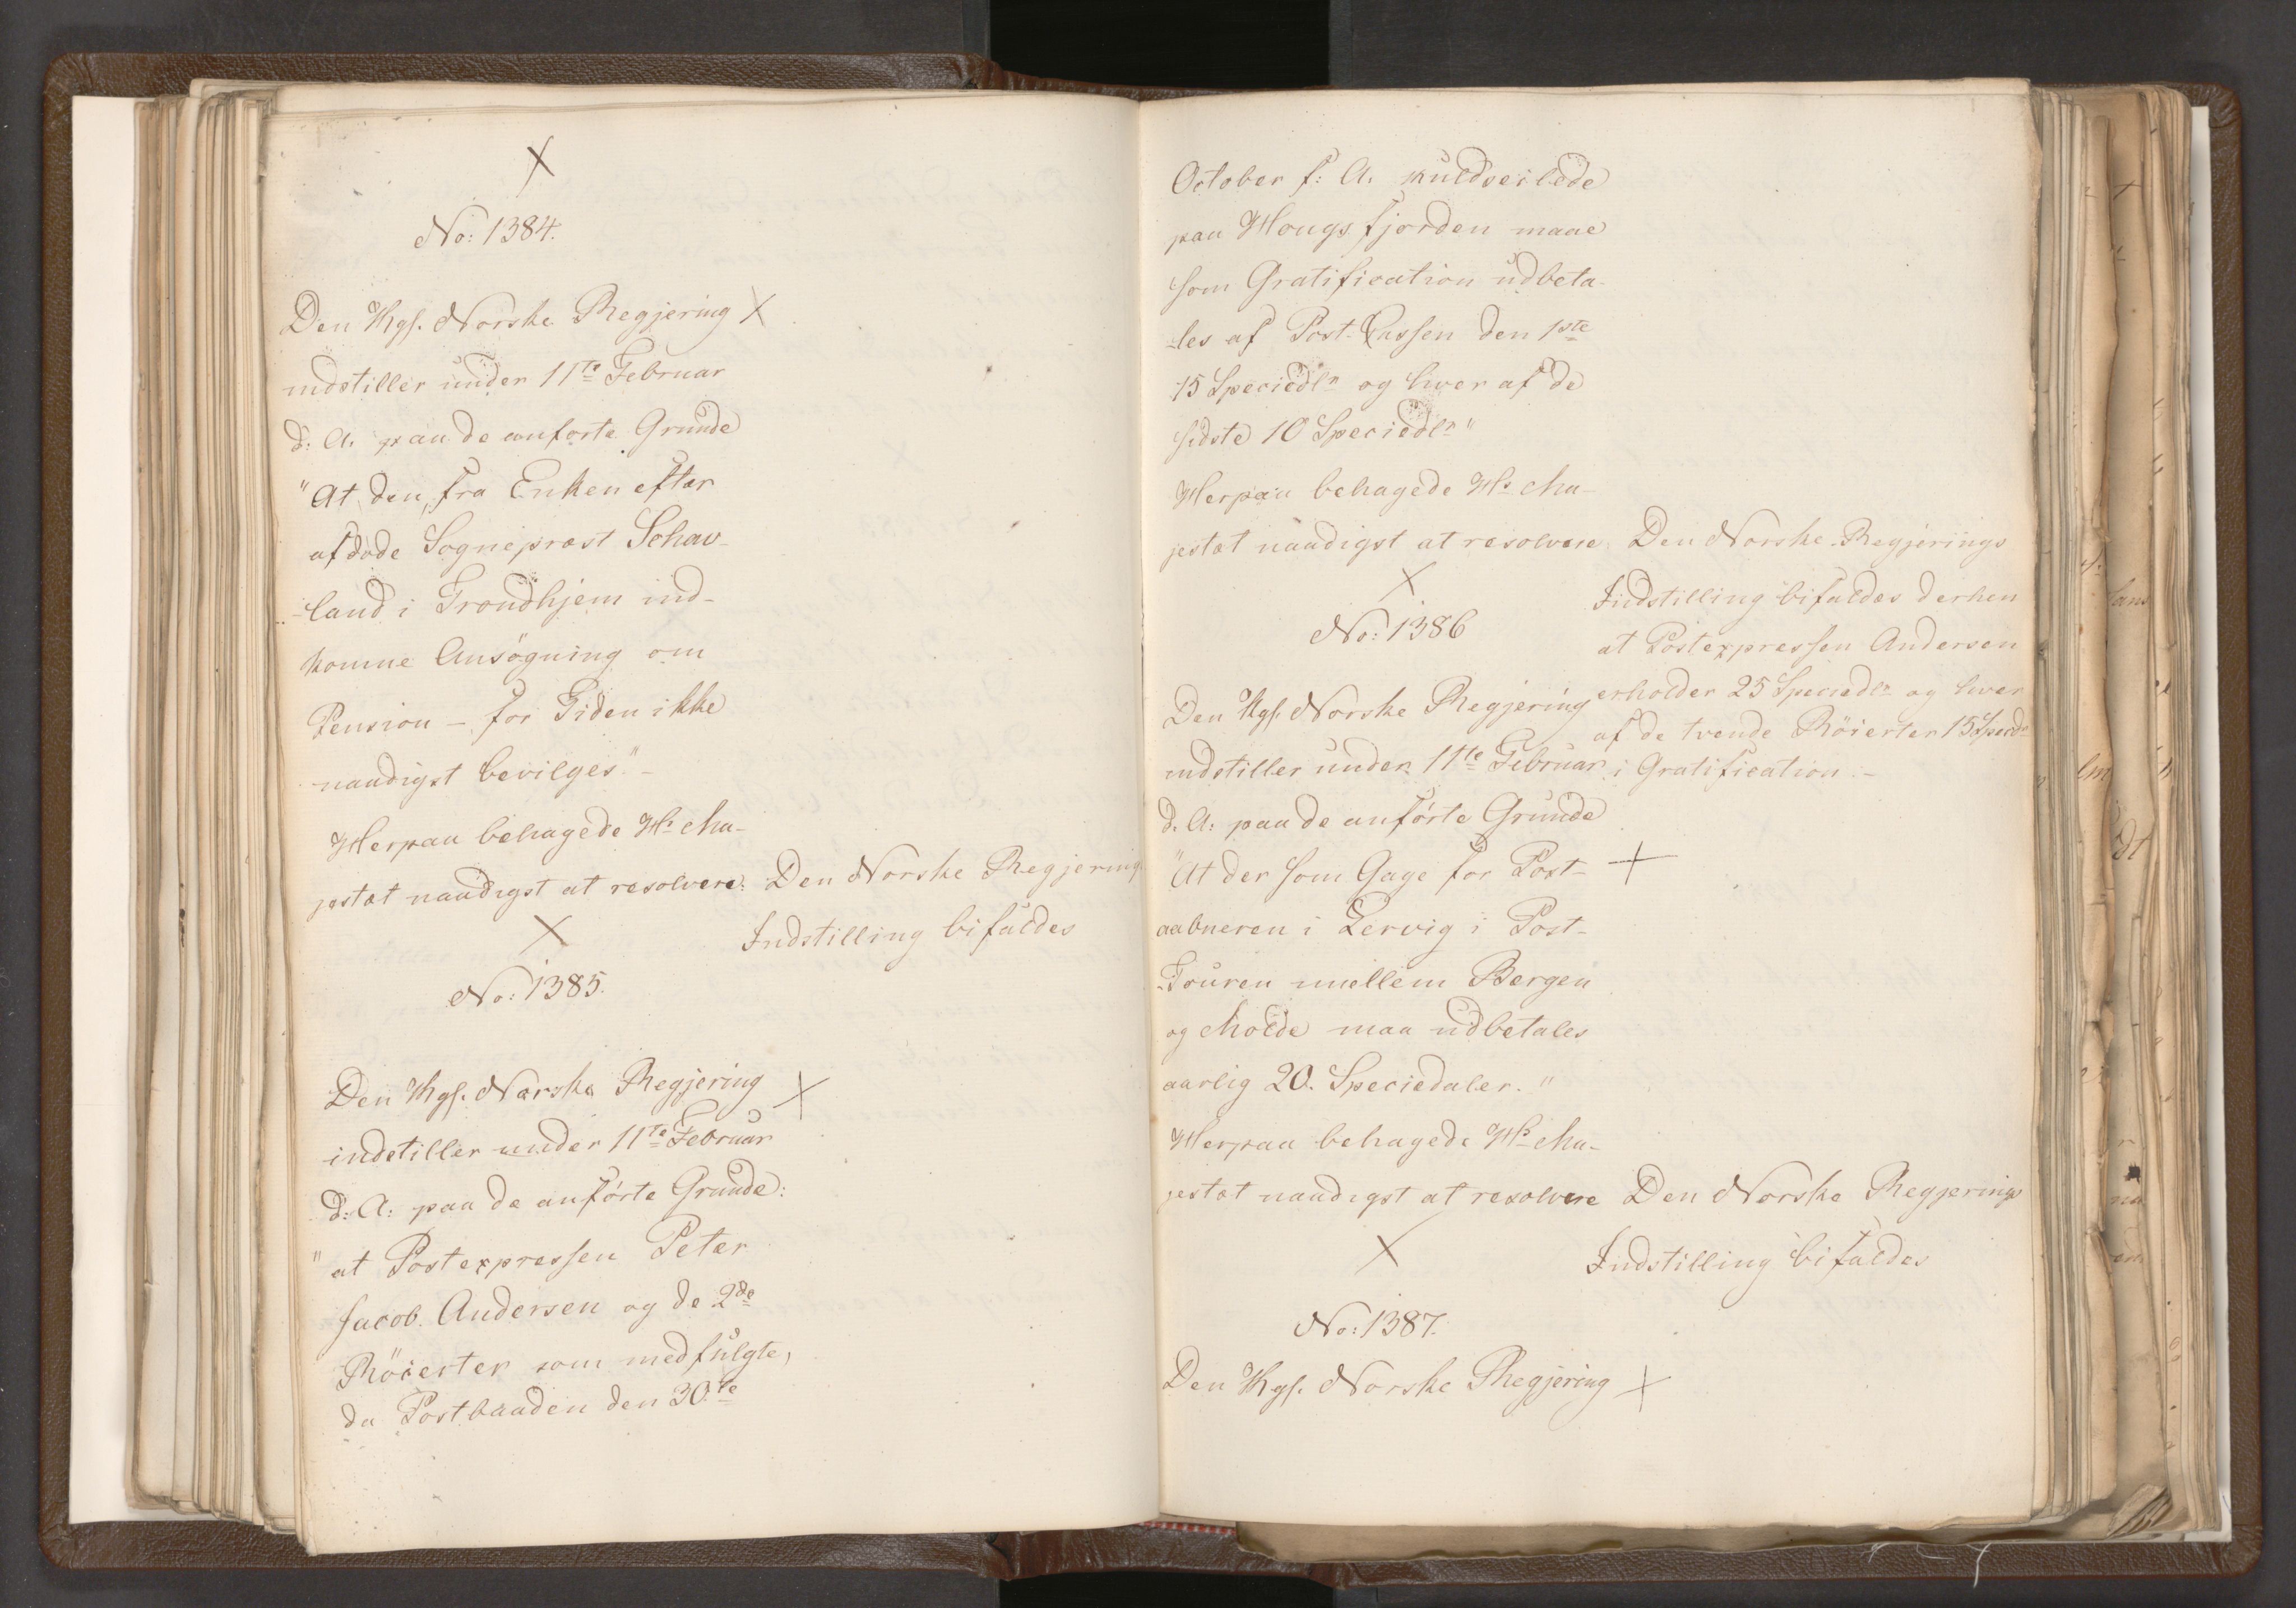 No: 1384.
Den Kgs. Norske Regjering
indstiller under 11te Februar
d: A. paa de anførte Grunde
"At den, fra Enken efter
afdøde Sognepræst Schav-
-land i Trondhjem ind-
komne Ansøgning om
Pension – for Tiden ikke
naadigst bevilges." –
Herpaa behagede Hs Ma-
jestæt naadigst at resolvere:
Den Norske Regjerings
Indstilling bifaldes
No: 1385.
Den Kgs. Norske Regjering
indstiller under 11te Februar
d: A: paa de anførte Grunde:
"at Postexpressen Peter
Jacob Andersen og de 2de
Röierter som medfulgte,
da Postbaaden den 30.te
October f: A. kuldseilede
paa Hougsfjorden maae
som Gratification udbeta-
-les af Post-Cassen den 1ste
15 Speciedlr og hver af de
sidste 10 Speciedlr"
Herpaa behagede Hs Ma-
jestæt naadigst at resolvere
Den Norske Regjerings
Indstilling bifaldes derhen
at Postexpressen Andersen
erholder 25 Speciedlr og hver
af de tvende Röierter 15 Specdr
i Gratification. –
No: 1386
Den Kgs. Norske Regjering
indstiller under 11te Februar
d. A: paa de anførte Grunde
"At der som Gage for Post-
aabneren i Lervig i Post-
-Touren mellem Bergen
og Molde maa udbetales
aarlig 20. Speciedaler."
Herpaa behagede Hs Ma-
jestæt naadigst at resolvere
Den Norske Regjerings
Indstilling bifaldes
No: 1387.
Den Kgs. Norske Regjering